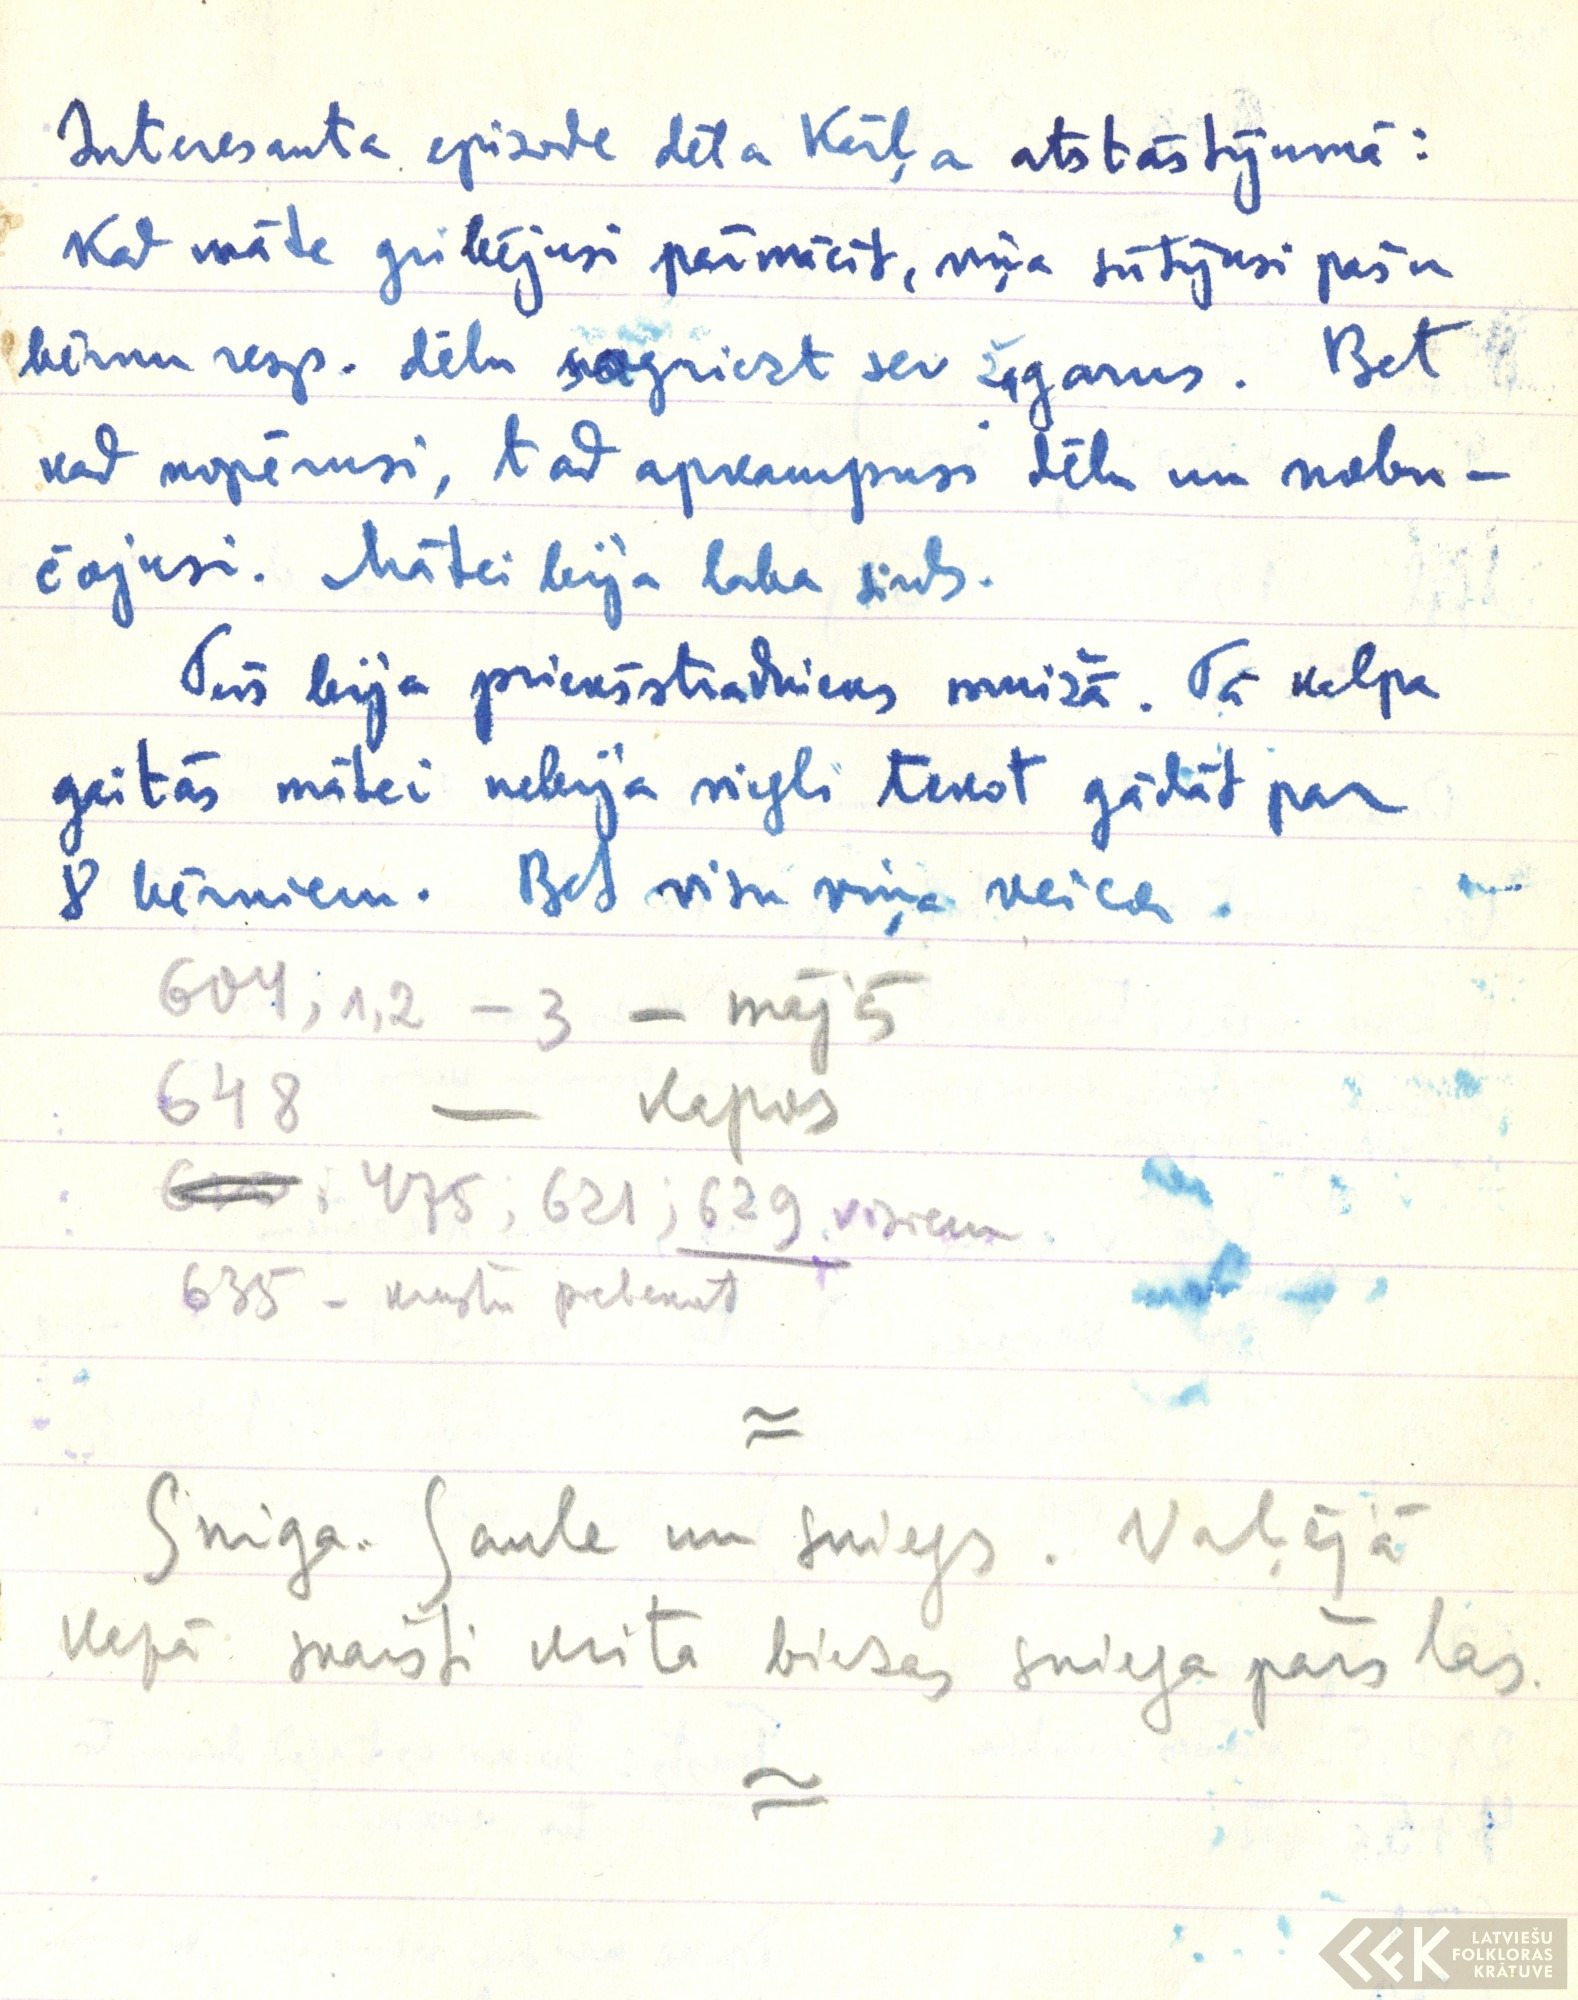 Interesanta epizode dēla Kārļa atstāstījumā:
Kad māte gribējusi pārmācīt, viņa sūtījusi pašu
bērnu resp. dēlu sagriezt sev žagarus. Bet
kad nopērusi, tad apkampusi dēlu un nobu-
čojusi. Mātei bija laba sirds.
Tēvs bija priekšstrādnieks muižā. Tā kalpa
gaitās mātei nebija viegli tekot gādāt par
8 bērniem. Bet visu viņa veica.
604; 1,2 - 3 - māj5
648 - kapos
; 475; 621; 629 visiem
635 - krustu pieliekot
≃
Sniga. Saule un sniegs. Vaļējā
kapā skaisti krita biezas sniega pārslas.
≃
LATVIEŠU
FOLKLORAS
KRĀTUVE